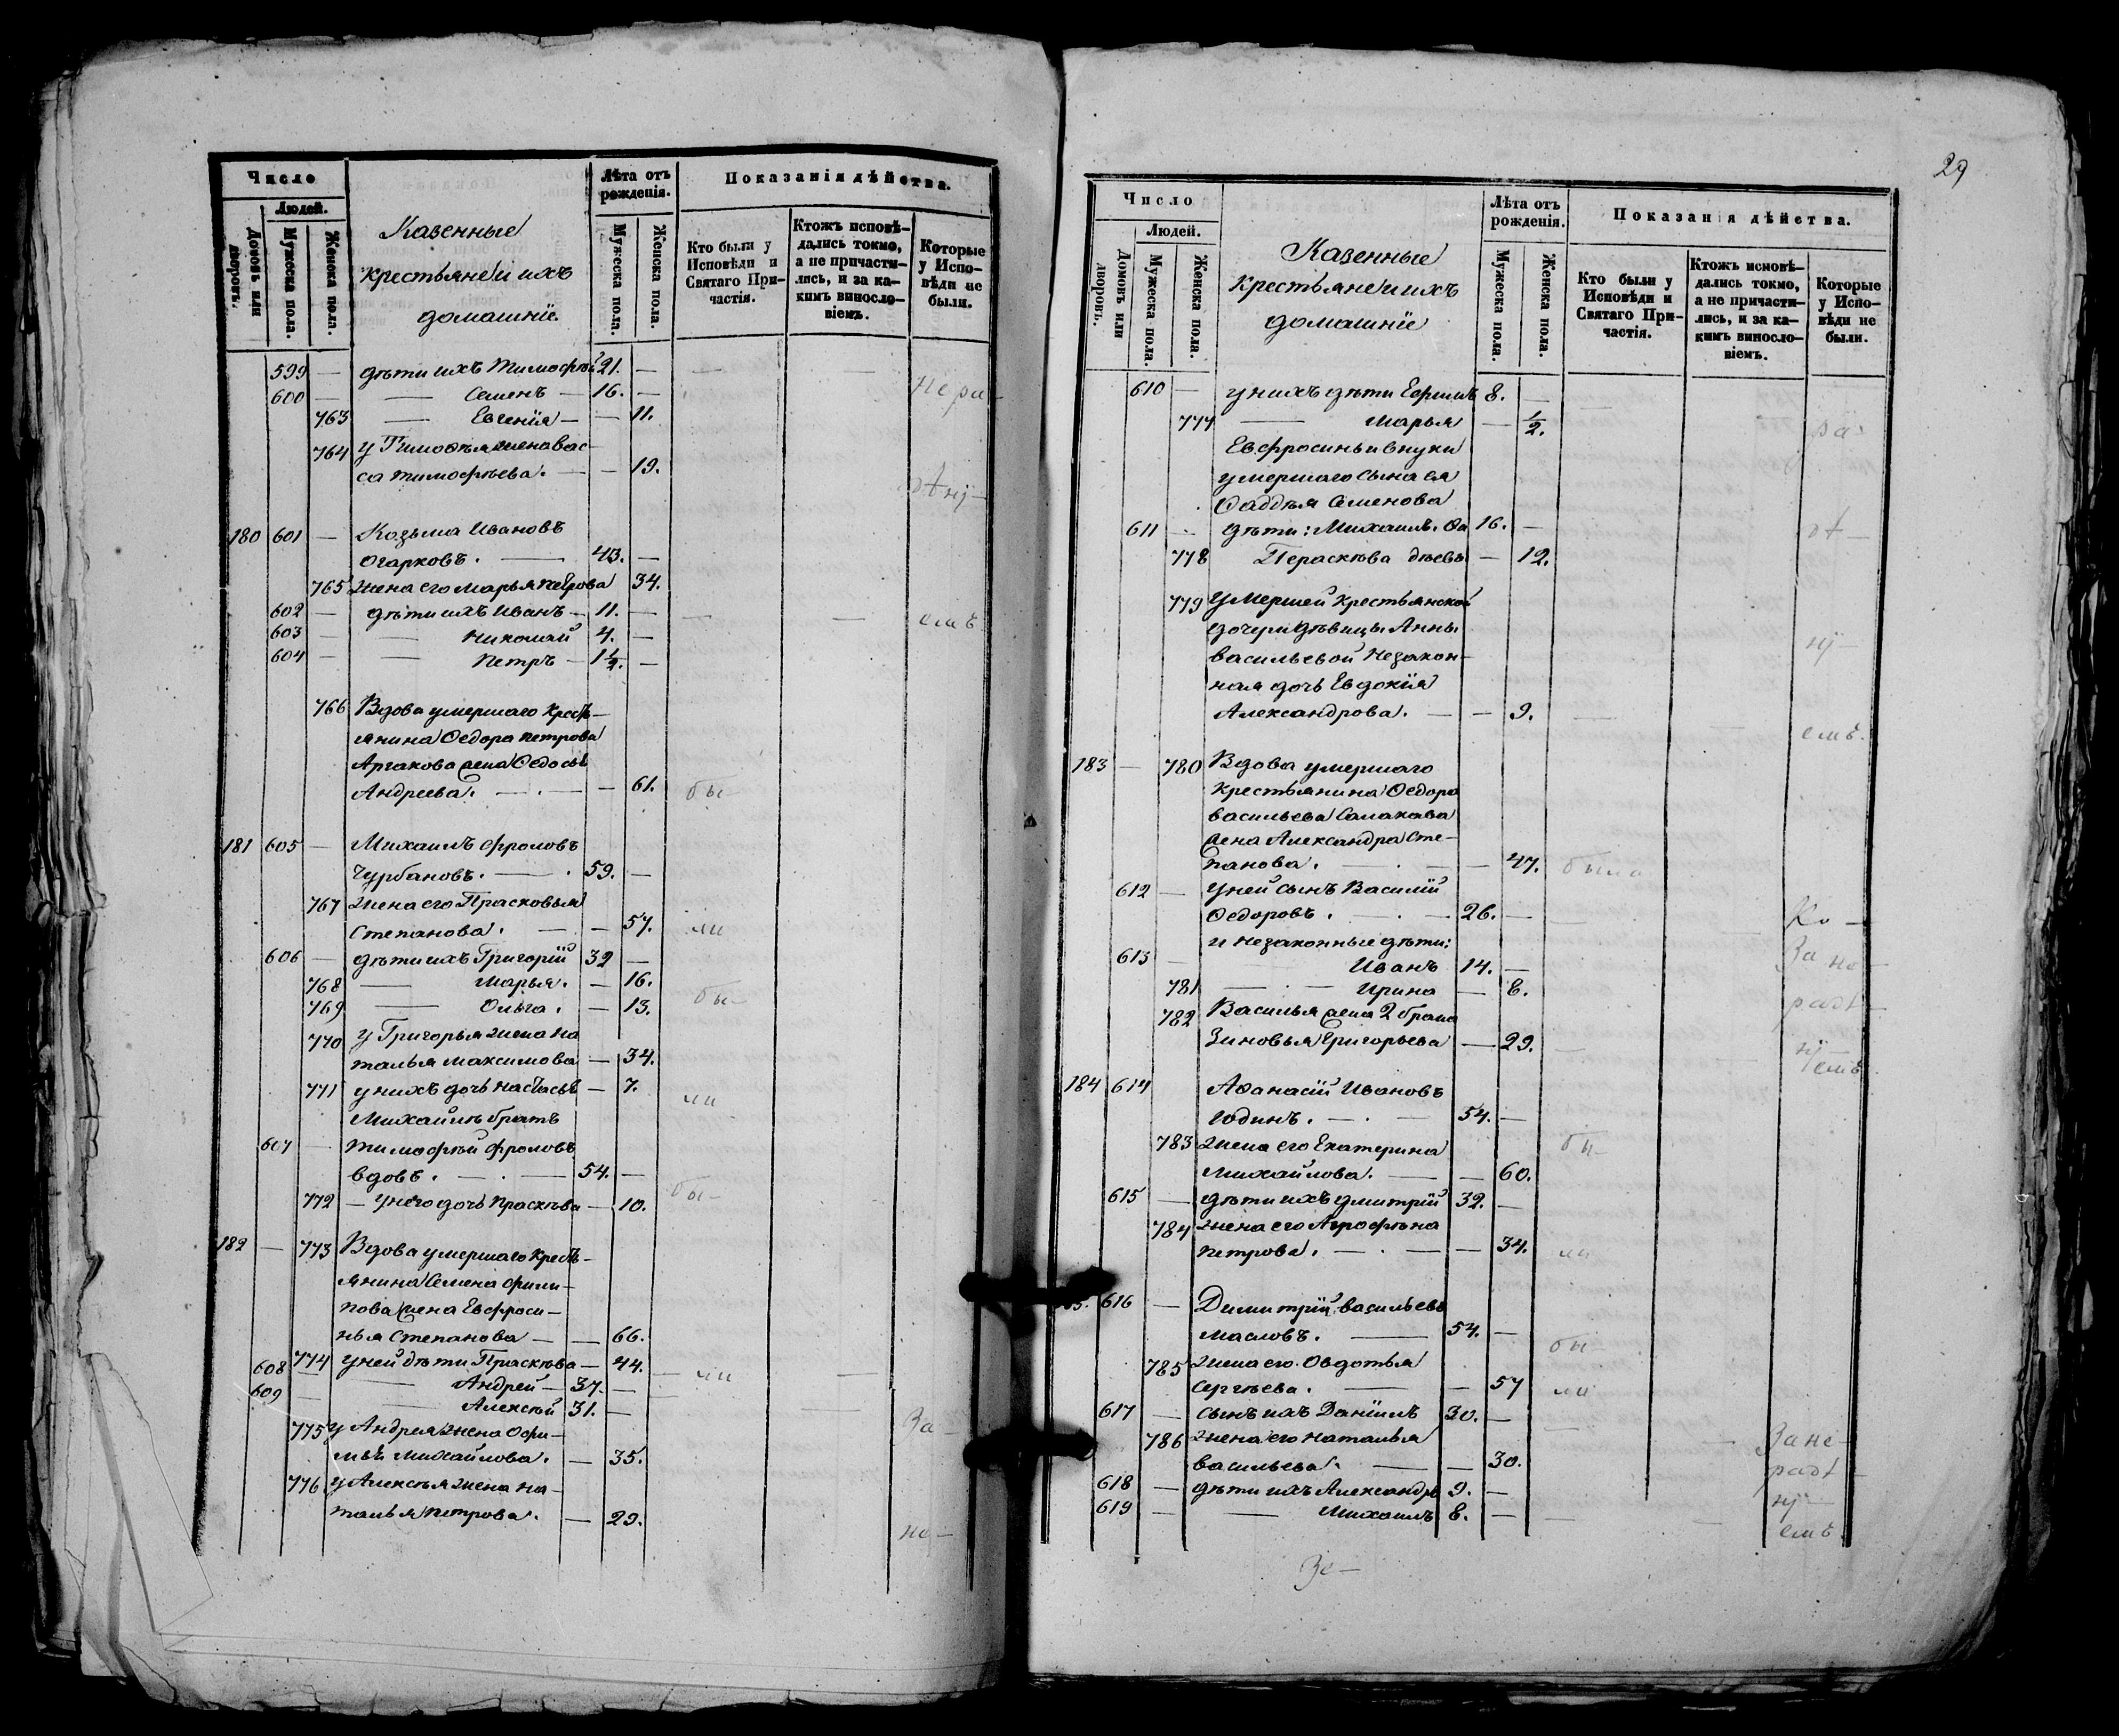 Число
Людей.
Домовъ или дворовъ.
Мужеска пола.
Женска пола.
Казенные
крестьяне и ихъ
домашніе.
Лѣта отъ рожденія.
Мужеска пола.
Женска пола.
Показанія дѣйства.
Кто были у Исповѣди и Святаго Причастія.
Ктожъ исповѣдались токмо, а не причастились, и за какимъ винословіемъ.
Которые у Исповѣди не были.
599 — дѣти ихъ Тимофѣй 21. —
600 — — Семенъ — 16. —
763 — Евгенія — — 11.
764 у Тимоѳѣя жена Вас-
са Тимофѣева. — — 19.
180 601 — Козьма Ивановъ
Огарковъ. — 43. —
765 жена его Марья Петрова 34.
602 — дѣти ихъ Иванъ — 11. —
603 — — Николай 4. —
604 — — Петръ — 1½. —
емъ
766 Вдова умершаго кресть-
янина Ѳедора Петрова
Аргакова жена Ѳедосья
Андреева. — . — — 61. бы-
181 605 — Михаилъ Фроловъ
Чурбановъ. — . 59. —
767 жена его Прасковья
Степанова. — — 57. ли
606 — дѣти ихъ Григорій 32 —
768 — Марья. — 16.
769 — Ольга. — 13. бы-
770 у Григорья жена На
талья Максимова — 34.
771 у нихъ дочь Настасья — 7. ли
Михайлы братъ
607 — Тимофѣй Фроловъ
вдовъ. — . — 54. —
772 — У него дочь Праскѣва — 10. бы-
182 — 773 Вдова умершаго кресть-
янина Семена Фили-
пова жена Евфроси-
нья Степанова — — 66.
774 у ней дѣти Праскѣва — 44. — ли —
608 — — Андрей — 37. —
609 — — Алексѣй 31. —
За —
775 у Андрея жена Офи-
мья Михайлова. — 35.
776 у Алексѣя жена На-
талья Петрова. — 29.
не —
29
Число
Людей.
Домовъ или дворовъ.
Мужеска пола
Женска пола.
Казенные
Крестьяне и ихъ
домашніе
Лѣта отъ рожденія.
Мужеска пола.
Женска пола.
Показанія дѣйства.
Кто были у Исповѣди и Святаго Причастія.
Ктожъ исповѣдались токмо, а не причастились, и за какимъ винословіемъ.
Которые у Исповѣди не были.
610 — у нихъ дѣти Ефимъ 8. —
777 — Марья — ½.
Евфросиньи внуки
умершаго сына ея
Ѳаддѣя Семенова
611 — дѣти: Михаилъ. Ѳа 16. —
778 Пераскѣва дѣевы — 12.
779 Умершей крестьянской
дочери дѣвицы Анны
Васильевой незакон-
ная дочь Евдокія
Александрова. — — 9. —
емъ.
183 — 780 Вдова умершаго
Крестьянина Ѳедора
Васильева
жена Александра Сте-
панова. — . — — 47. была
612 — У ней сынъ Василій
Ѳедоровъ. — . — 26. —
и незаконные дѣти:
613 — Иванъ 14. —
За не
781 — . — Ирина — 8.
рад
782 Василья жена 2 брака
Зиновья Григорьева — 29.
емъ
184 614 Аѳанасій Ивановъ
Юдинъ. — . — 54. —
783 жена его Екатерина бы-
Михайлова. — — 60.
615 — дѣти ихъ Дмитрій 32. —
784 жена его Агрофѣна
Петрова. — . — — 34. ли
616 — Димитрій Васильевъ
Масловъ. — 54. — бы-
785 жена его. Овдотья
Сергѣева. — — 57 ли
617 — сынъ ихъ Даніилъ 30. —
786 жена его Наталья За не-
Васильева. — — 30. рад
618 — дѣти ихъ Александръ 9. —
619 — — Михаилъ 8. —
емъ.